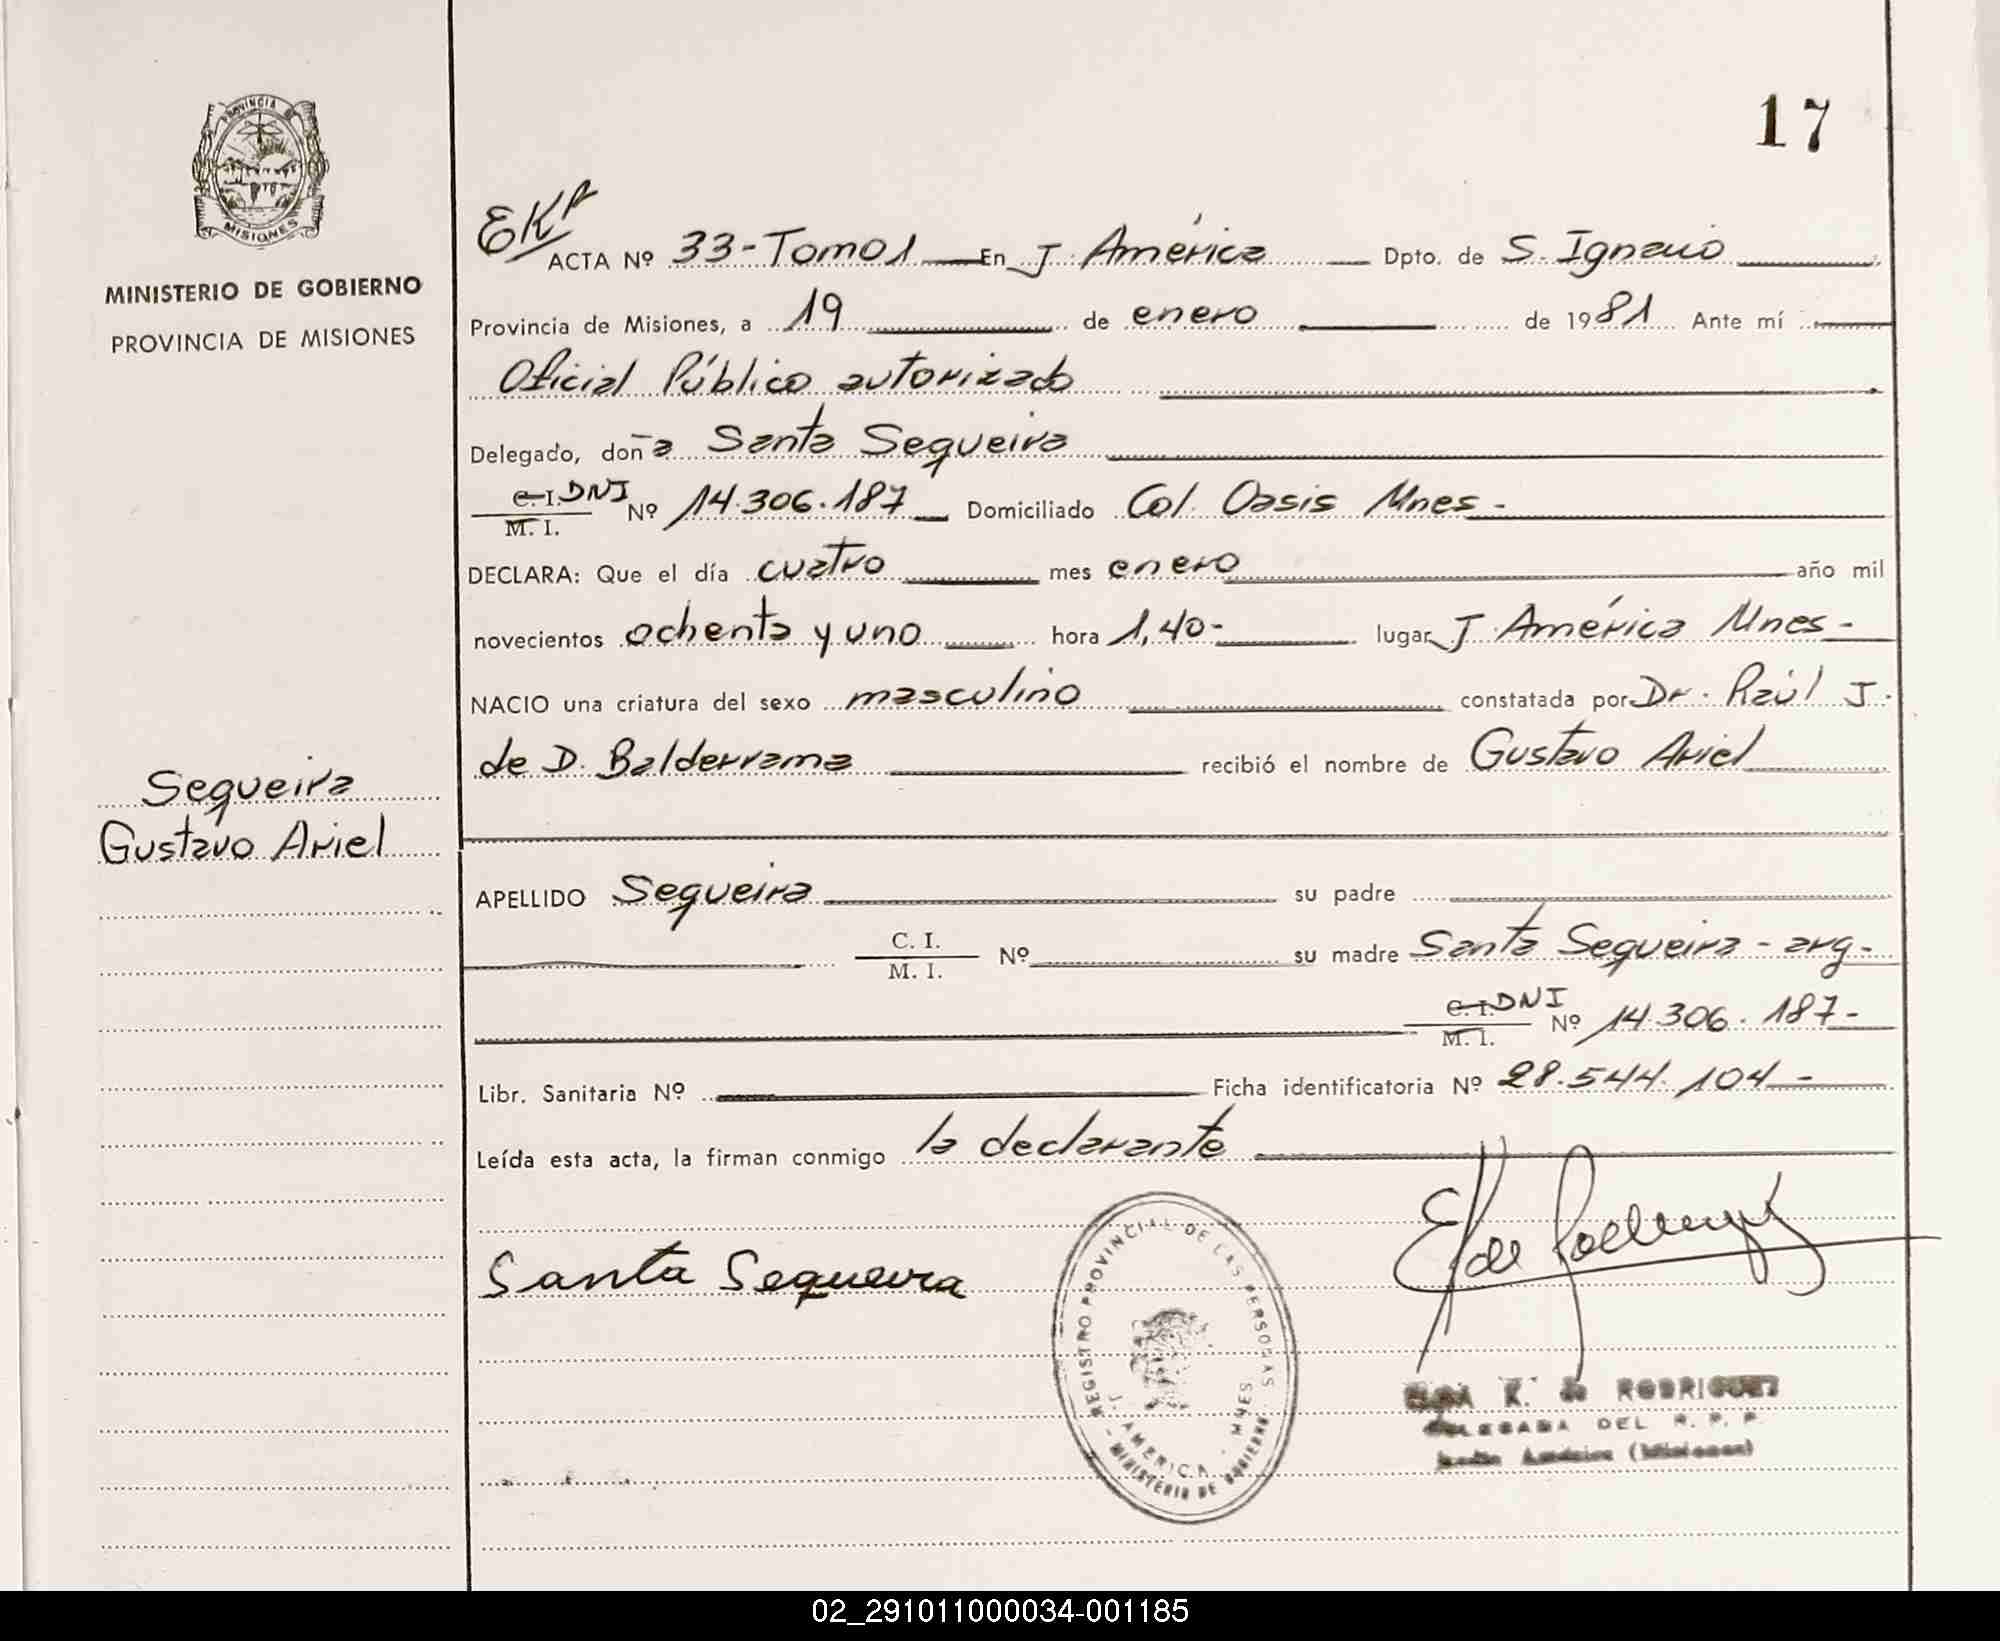 PROVINCIA DE
MISIONES
MINISTERIO DE GOBIERNO
PROVINCIA DE MISIONES
Sequeira
Gustavo Ariel
17
ACTA Nº 33-Tomo 1 En J. América Dpto. de S. Ignacio
Provincia de Misiones, a 19 de enero de 1981 Ante mí
Oficial Público autorizado
Delegado, doña Santa Sequeira
C. I. DNI
M. I. Nº 14.306.187 Domiciliado Col. Oasis Mnes-
DECLARA: Que el día cuatro mes enero año mil
novecientos ochenta y uno hora 1,40- lugar J. América Mnes-
NACIO una criatura del sexo masculino constatada por Dr. Raúl J.
de D. Balderrama recibió el nombre de Gustavo Ariel
APELLIDO Sequeira su padre
C. I.
M. I. Nº su madre Santa Sequeira - arg-
C. I. DNI
M. I. Nº 14.306.187-
Libr. Sanitaria Nº Ficha identificatoria Nº 28.544.104-
Leída esta acta, la firman conmigo la declarante
Santa Sequeira
REGISTRO PROVINCIAL DE LAS PERSONAS
J. AMERICA - MNES
- MINISTERIO DE GOBIERNO
K. de RODRIGUEZ
DELEGADA DEL R. P. P.
Jardín América (Misiones)
02_291011000034-001185